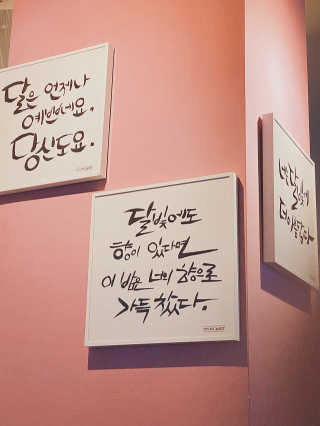 달은 언제나
예쁘네요,
당신도요.
달빛에도
향이 있다면
이 밤은 너의 향으로
가득 찼다.